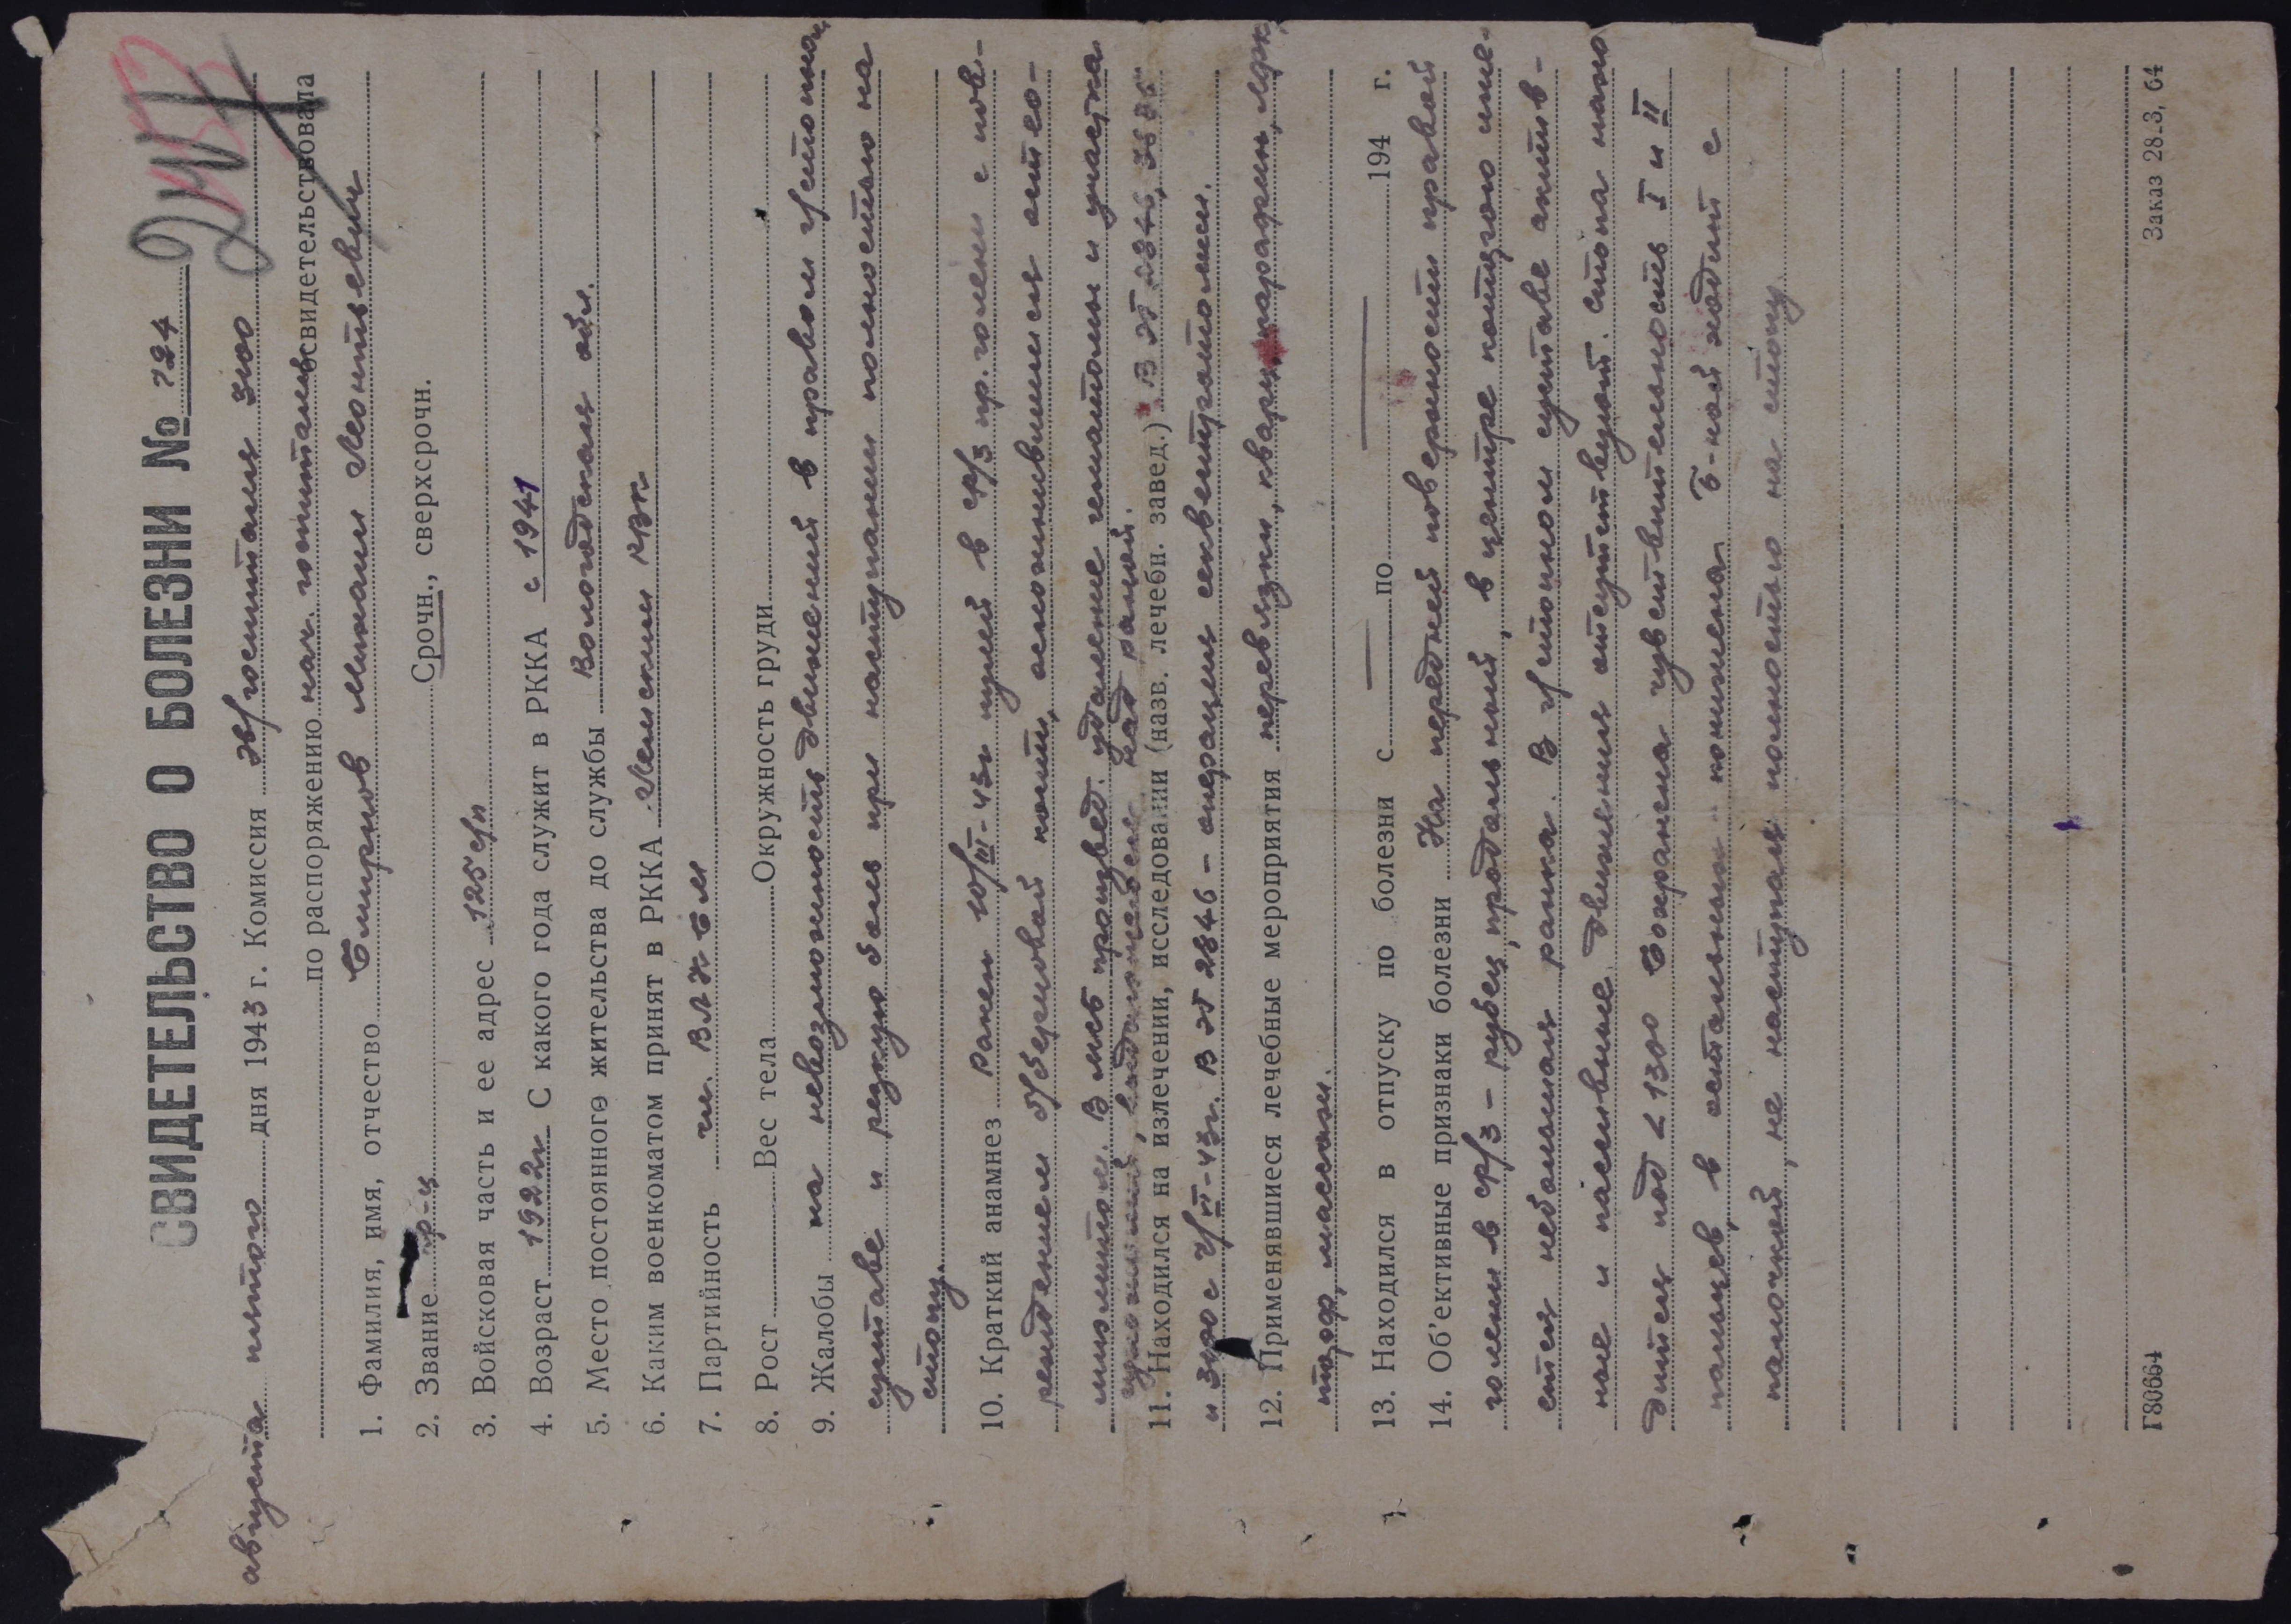 СВИДЕТЕЛЬСТВО О БОЛЕЗНИ № 724
августа пятого дня 1943 г. Комиссия эв/госпиталя 3100
по распоряжению нач. госпиталя освидетельствовала
1. Фамилия, имя, отчество Смирнов Михаил Леонтьевич
2. Звание кр-ц Срочн., сверхсрочн.
3. Войсковая часть и ее адрес 125 с/п
4. Возраст 1922г С какого года служит в РККА с 1941
5. Место постоянного жительства до службы Вологодская обл.
6. Каким военкоматом принят в РККА Ленским РВК
7. Партийность чл. ВЛКСМ
8. Рост Вес тела Окружность груди
9. Жалобы на невозможность движений в правом г/стопном
суставе и резкую боль при наступании полностью на
стопу.
10. Краткий анамнез Ранен 10/III-43г пулей в ср/3 пр. голени с пов-
реждением б/берцовой кости, осложнившимся остео-
миэлитом. В МСБ произвед. удаление гематомы и участка
над раной.
11. Находился на излечении, исследовании (назв. лечебн. завед.) В ЭГ
и 3100 с 2/VI-43г. В ЭГ 2846 - операция секвестротомии.
12. Применявшиеся лечебные мероприятия перевязки, кварц, парафин, ЛФК,
массаж.
13. Находился в отпуску по болезни с — по — 194 г.
14. Об'ективные признаки болезни На передней поверхности правой
голени в ср/3 - рубец, продольный, в центре которого име-
ется небольшая ранка. В г/стопном суставе актив-
ные и пассивные движения отсутствуют. Стопа нахо-
дится под ∠ 130° Сохранена чувствительность I и II
пальцев, в остальных понижена. Б-ной ходит с
палочкой, не наступая полностью на стопу.
Г80664 Заказ 28.3, 64